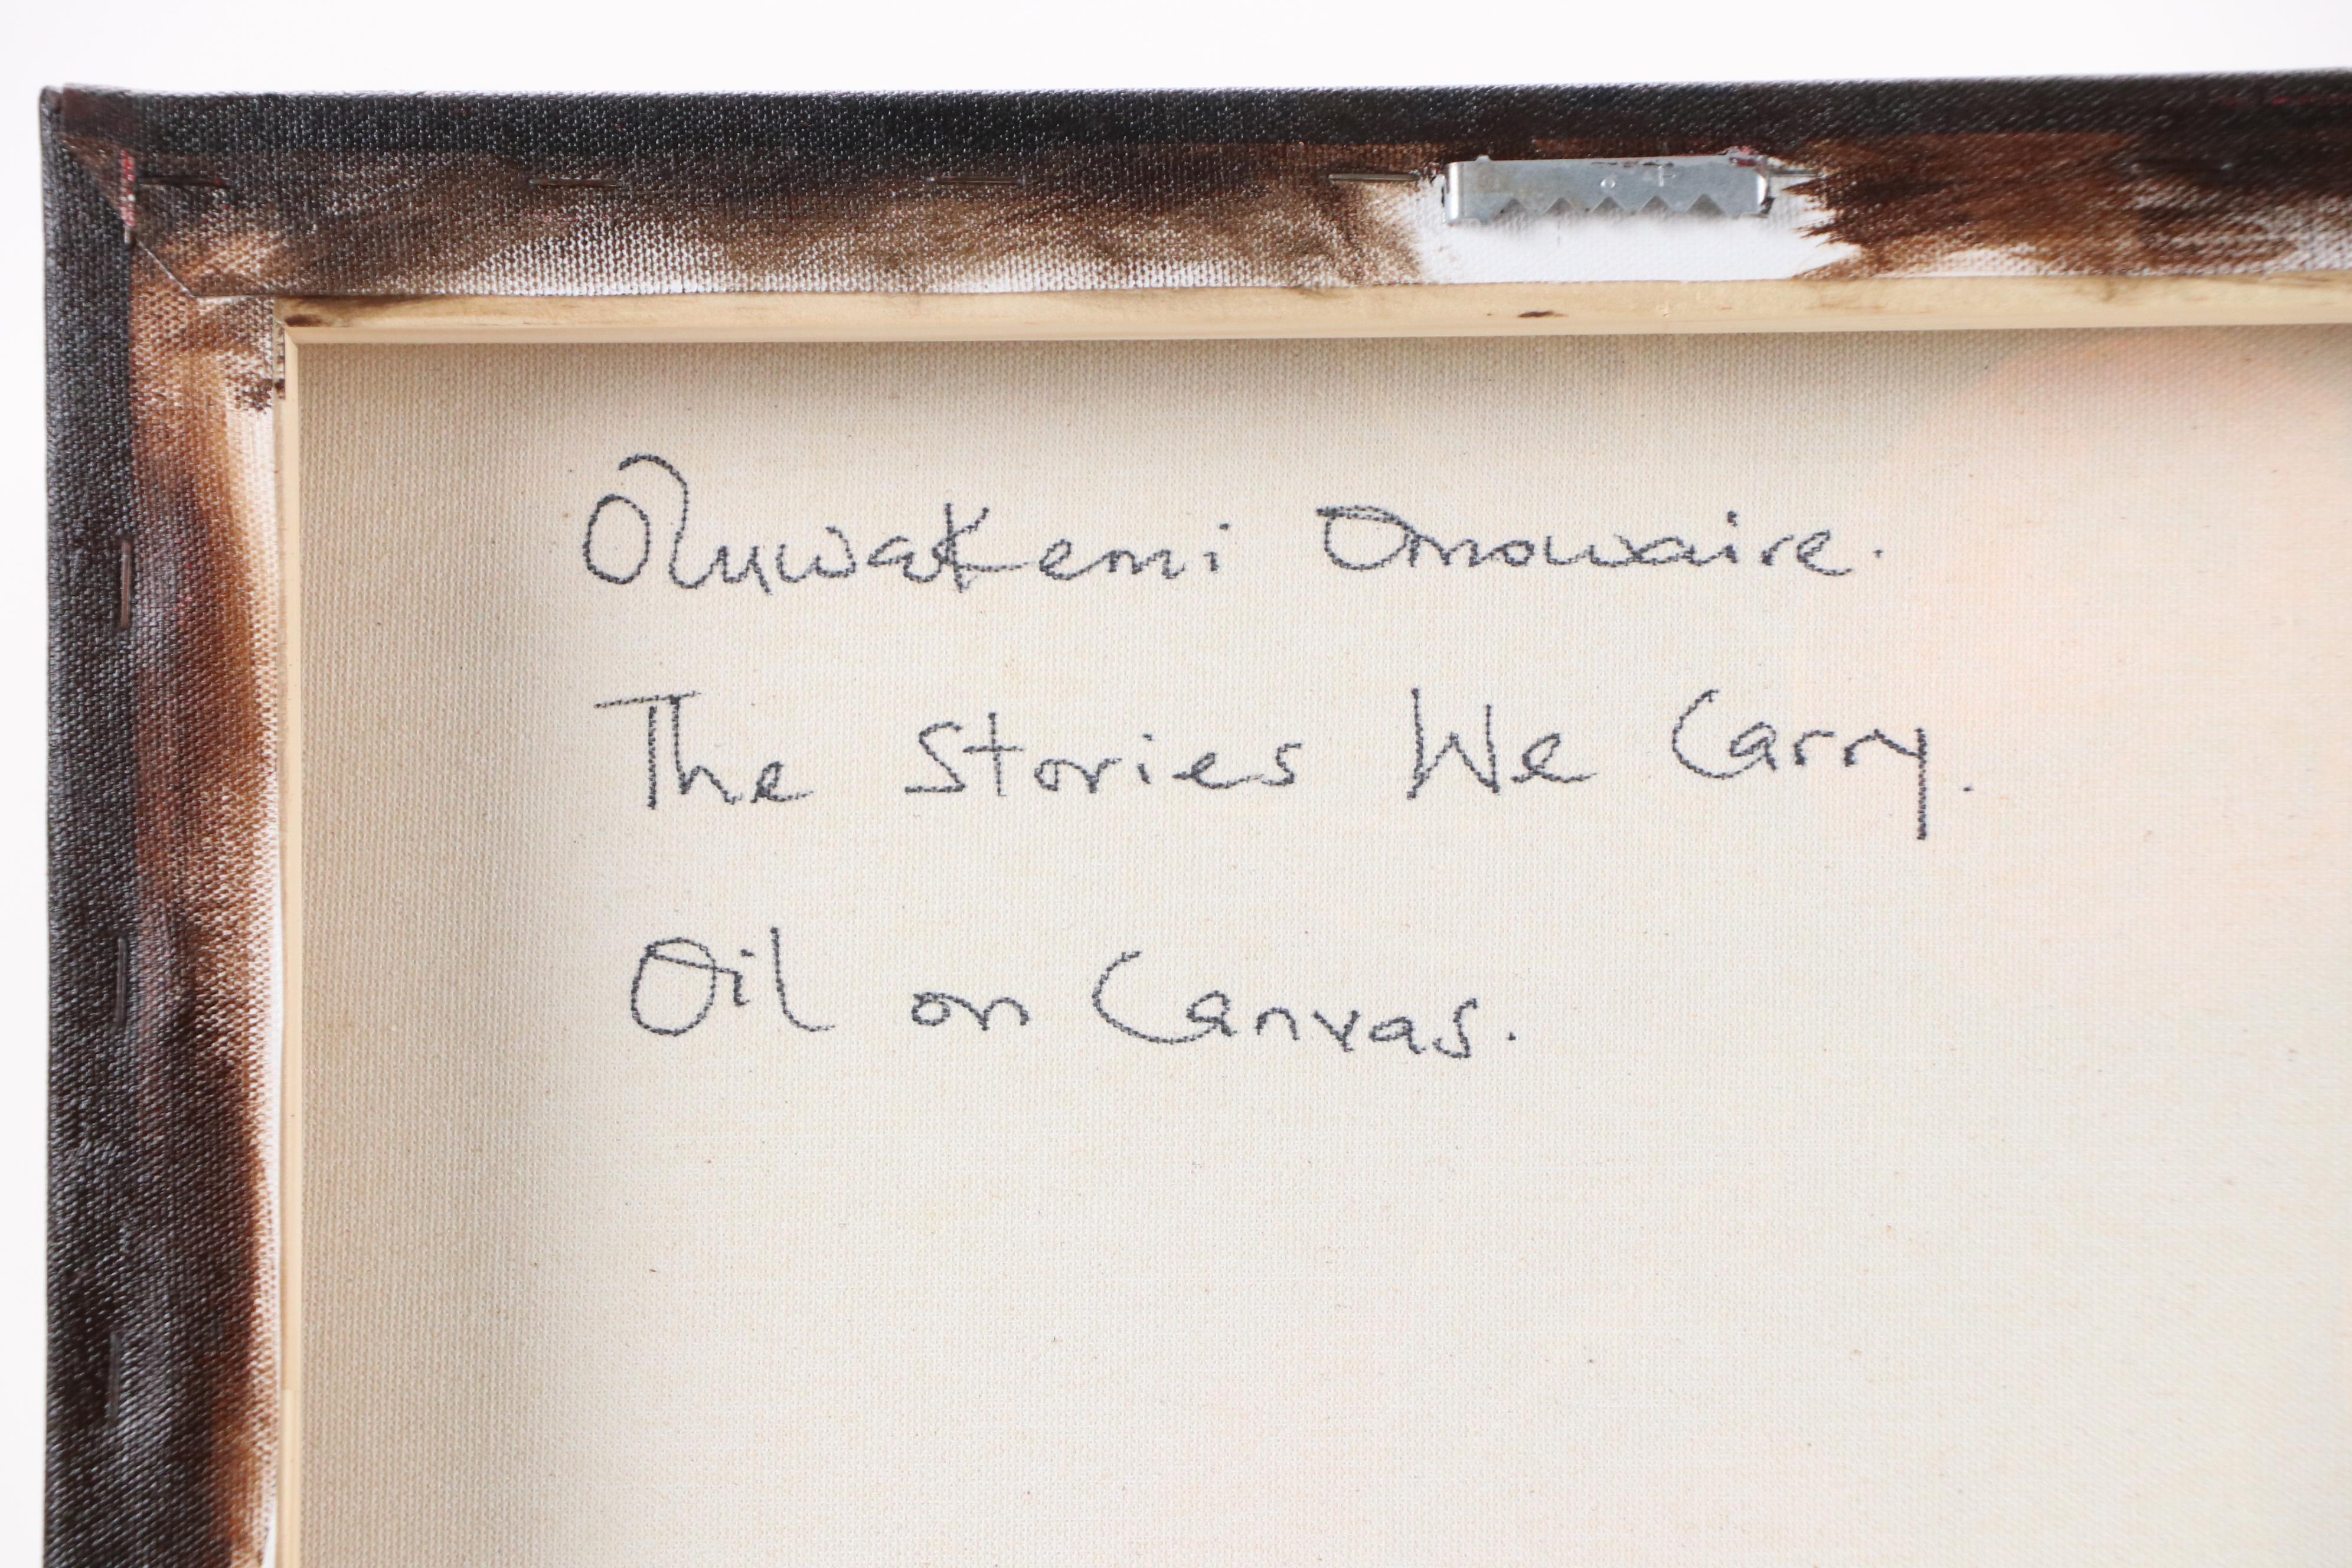 Oluwakemi Omowaire.
The Stories We Carry.
Oil on Canvas.